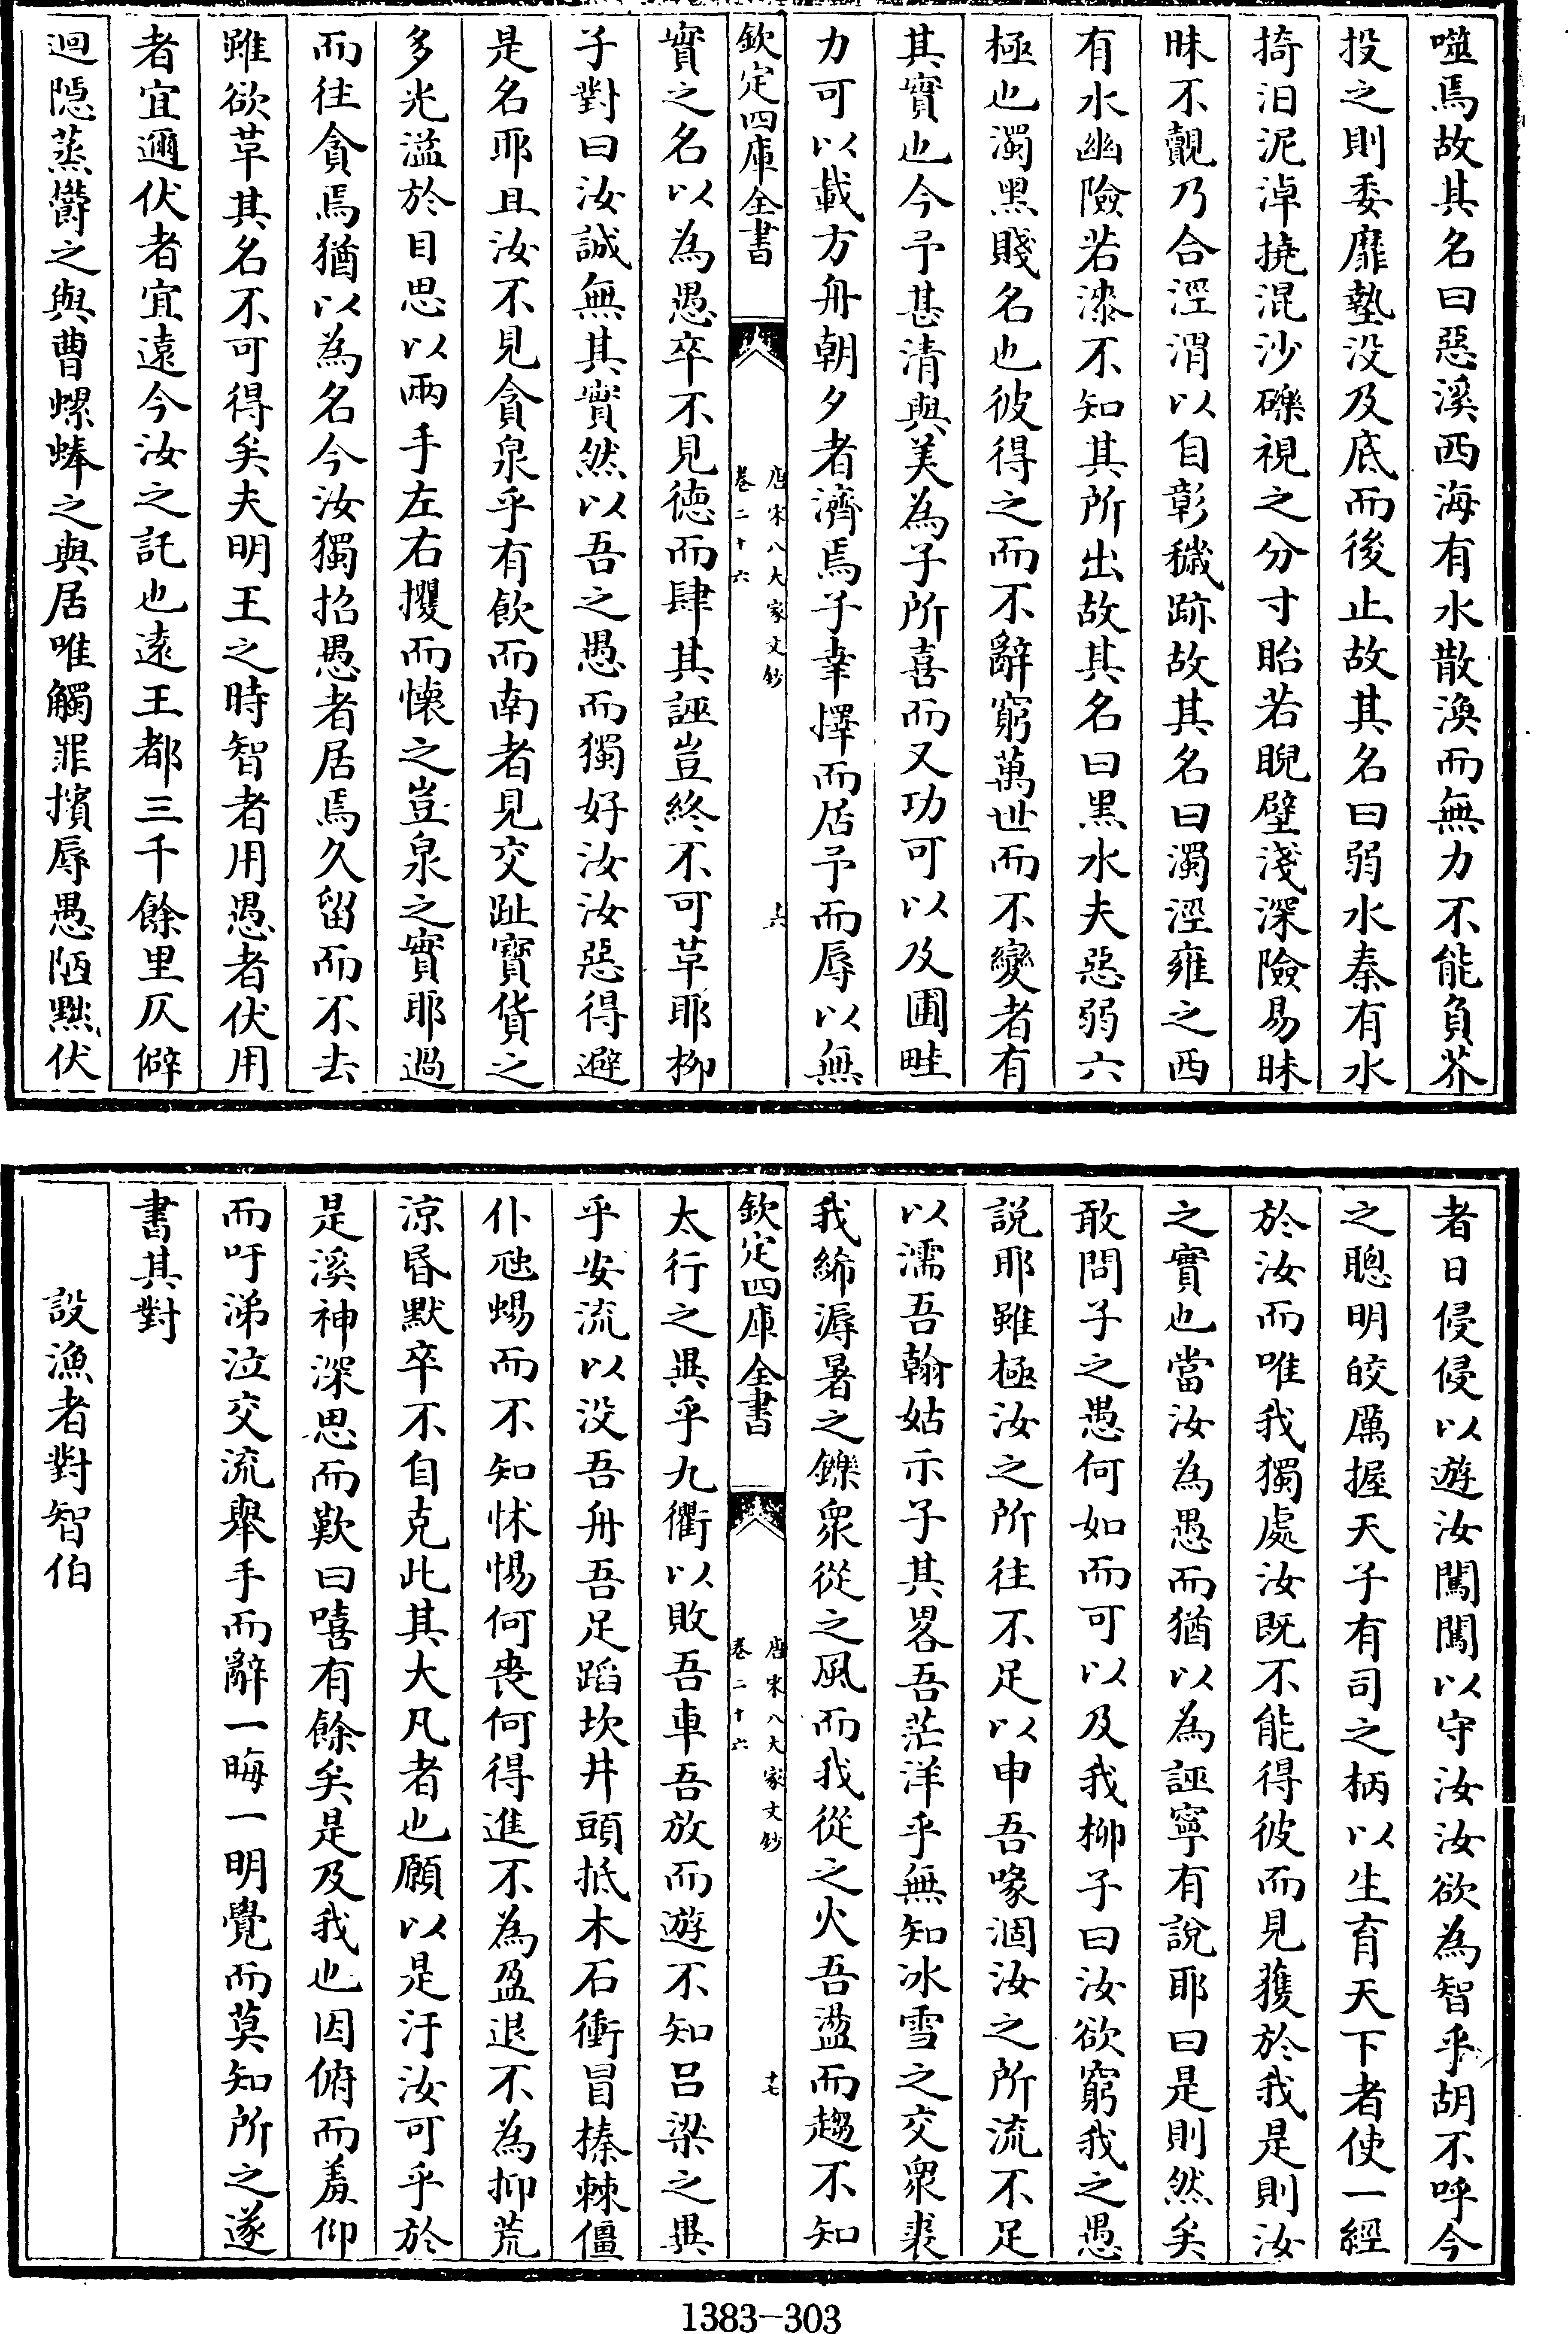 噬焉故其名曰惡溪西海有水散渙而無力不能負芥
投之則委靡墊没及底而後止故其名曰弱水秦有水
掎汩泥淖撓混沙礫視之分寸眙若睨壁淺深險易昧
昧不覿乃合涇渭以自彰穢跡故其名曰濁涇雍之西
有水幽險若漆不知其所出故其名曰黒水夫惡弱六
極也濁黒賤名也彼得之而不辭窮萬世而不變者有
其實也今予甚清與美為子所喜而又功可以及圃畦
力可以載方舟朝夕者濟焉子幸擇而居予而辱以無
欽定四庫全書
唐宋八大家文鈔
卷二十六
十六
實之名以為愚卒不見德而肆其誣豈終不可革耶柳
子對曰汝誠無其實然以吾之愚而獨好汝汝惡得避
是名耶且汝不見貪泉乎有飲而南者見交趾寳貨之
多光溢於目思以兩手左右攫而懐之豈泉之實耶過
而往貪焉猶以為名今汝獨招愚者居焉久留而不去
雖欲革其名不可得矣夫明王之時智者用愚者伏用
者宜邇伏者宜遠今汝之託也遠王都三千餘里仄僻
迴隠蒸鬱之與曹螺蜯之與居唯觸罪擯辱愚陋黜伏
者日侵侵以遊汝闖闖以守汝汝欲為智乎胡不呼今
之聰明皎厲握天子有司之柄以生育天下者使一經
於汝而唯我獨處汝既不能得彼而見獲於我是則汝
之實也當汝為愚而猶以為誣寧有說耶曰是則然矣
敢問子之愚何如而可以及我柳子曰汝欲窮我之愚
説耶雖極汝之所往不足以申吾喙涸汝之所流不足
以濡吾翰姑示子其畧吾茫洋乎無知冰雪之交衆裘
我絺溽暑之鑠衆從之風而我從之火吾盪而趨不知
欽定四庫全書
唐宋八大家文鈔
卷二十六
十七
太行之異乎九衢以敗吾車吾放而遊不知吕梁之異
乎安流以没吾舟吾足蹈坎井頭抵木石衝冒榛棘僵
仆虺蜴而不知怵惕何喪何得進不為盈退不為抑荒
涼昬默卒不自克此其大凡者也願以是汙汝可乎於
是溪神深思而歎曰嘻有餘矣是及我也因俯而羞仰
而吁涕泣交流舉手而辭一晦一明覺而莫知所之遂
書其對
設漁者對智伯
1383-303